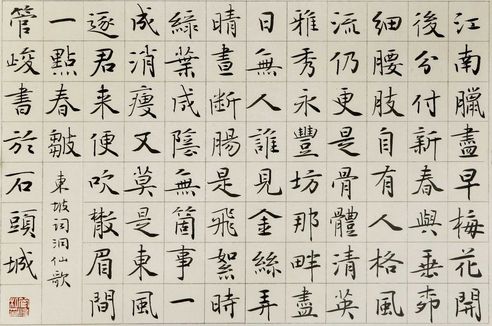 江南臘盡早梅花開
後分付新春與垂柳
細腰肢自有人格風
流仍更是骨體清英
雅秀永豐坊那畔盡
日無人誰見金絲弄
晴晝断腸是飛絮時
綠葉成陰無箇事一
成消瘦又莫是東風
逐君来便吹散眉間
一點春皺 東坡詞洞仙歌
管峻書於石頭城